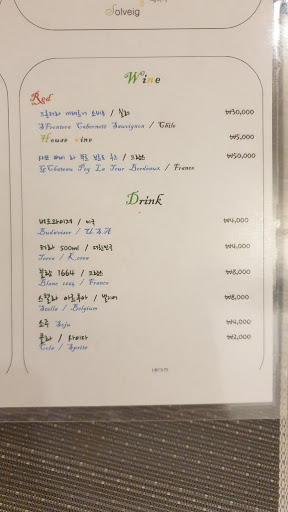 Solveig
Wine
Red
프론테라 까베르네 소비뇽 / 칠레 ₩30,000
Frontera Cabernett Sauvignon / Chile
House wine ₩5,000
샤또 페이 라 뚜르 보르도 루즈 / 프랑스 ₩50,000
Chateau Pey La Tour Bordeaux / France
Drink
버드와이저 / 미국 ₩4,000
Budwiser / U.S.A
테라 500ml / 대한민국 ₩4,000
Terra / Korea
블랑 1664 / 프랑스 ₩8,000
Blanc 1664 / France
스텔라 아르투아 / 벨기에 ₩8,000
Stella / Belgium
소주 Soju ₩4,000
콜라 / 사이다 ₩2,000
Cola / Sprite